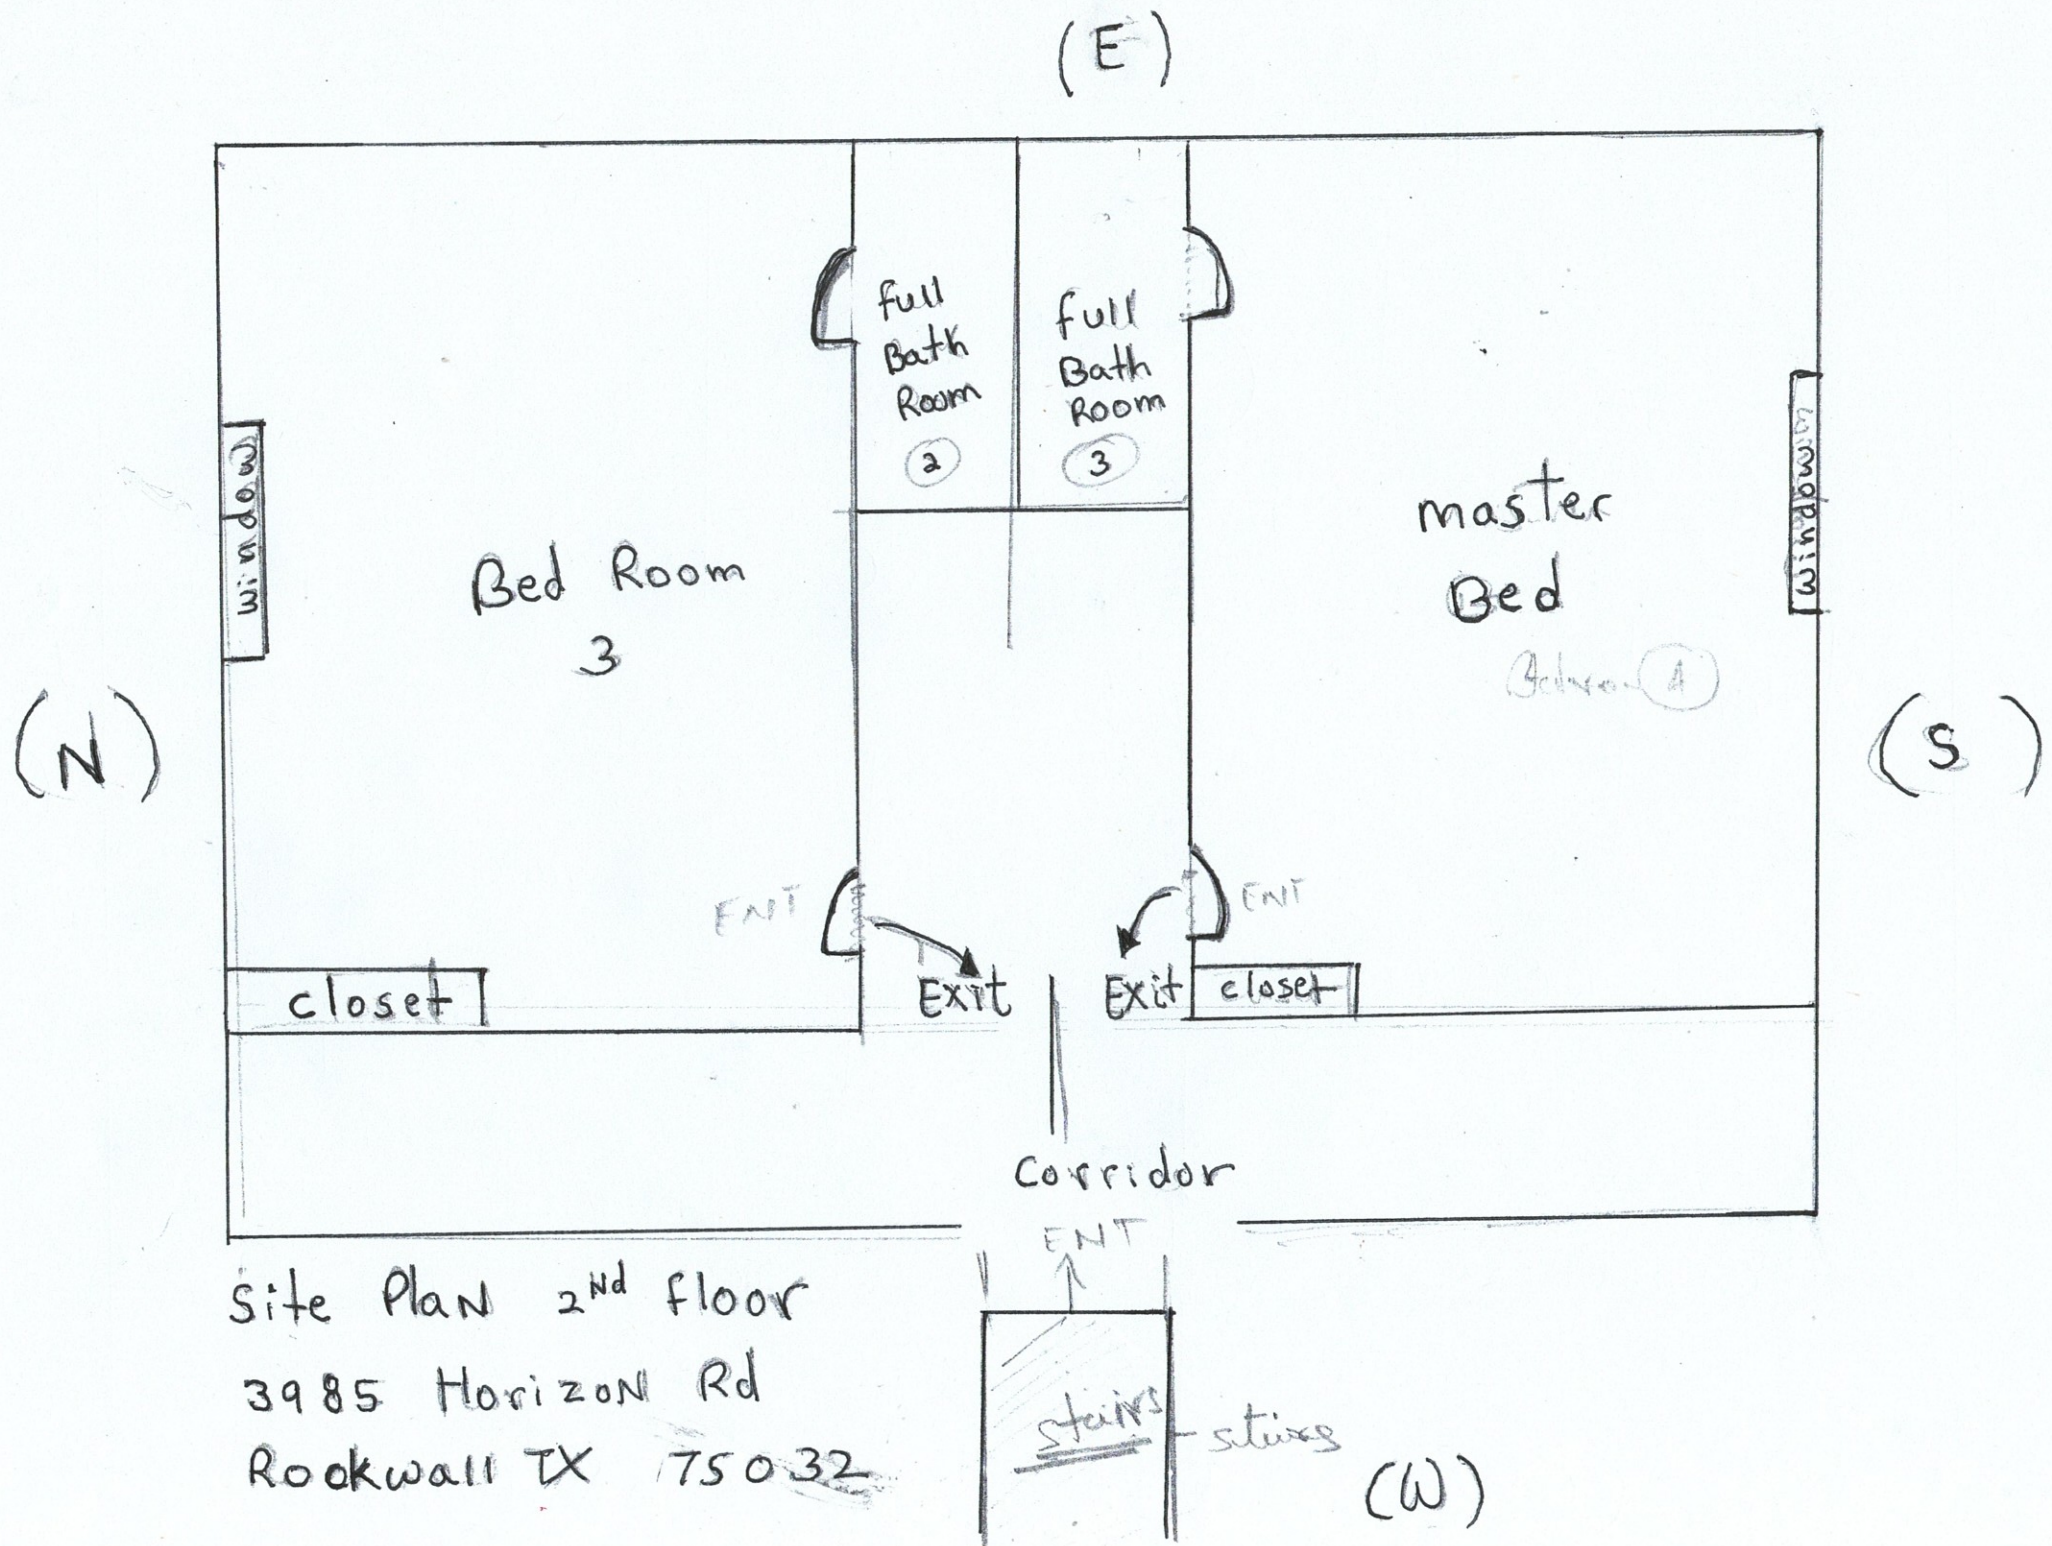 (E)
full
Bath
Room
2
full
Bath
Room
3
window
window
Bed Room
3
master
Bed
(N)
(S)
ENT
ENT
Exit
Exit
closet
closet
Corridor
ENT
Site PlaN 2Nd floor
3985 HorizoN Rd
Rockwall TX 75032
stairs
stairs
(W)